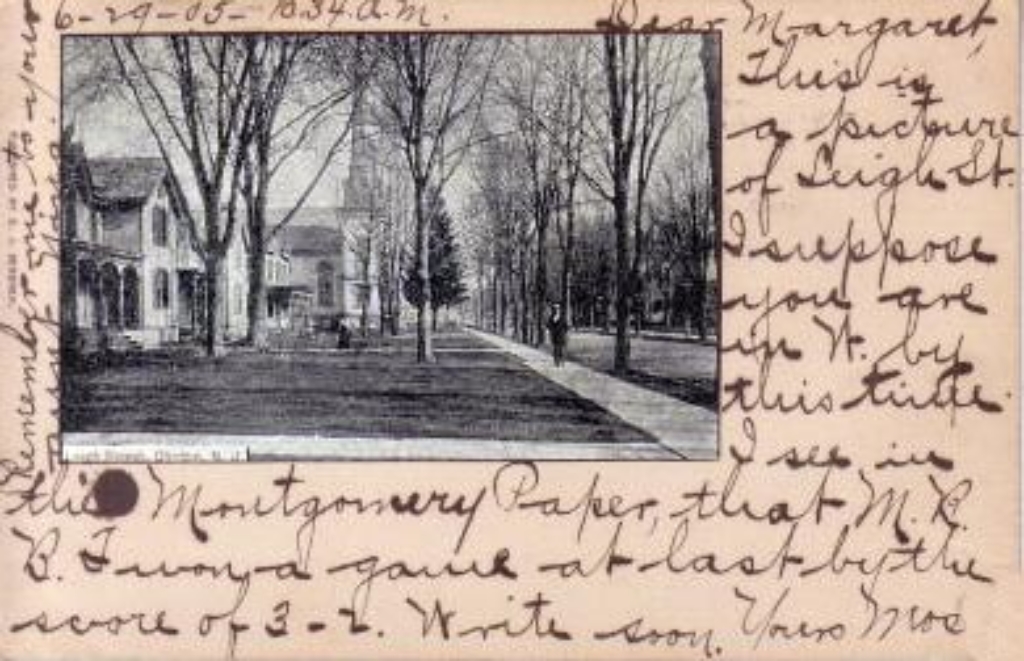 6-29-05- 10.34.a.m.
Dear Margaret,
This is
a picture
of Leigh St.
I suppose
you are
in W. by
this time.
I see, in
the Montgomery Paper, that M. R.
B. I won a game at last by the
score of 3-2. Write soon. Yours Mos
Remember me to yours
Leigh Street, Clinton, N. J.